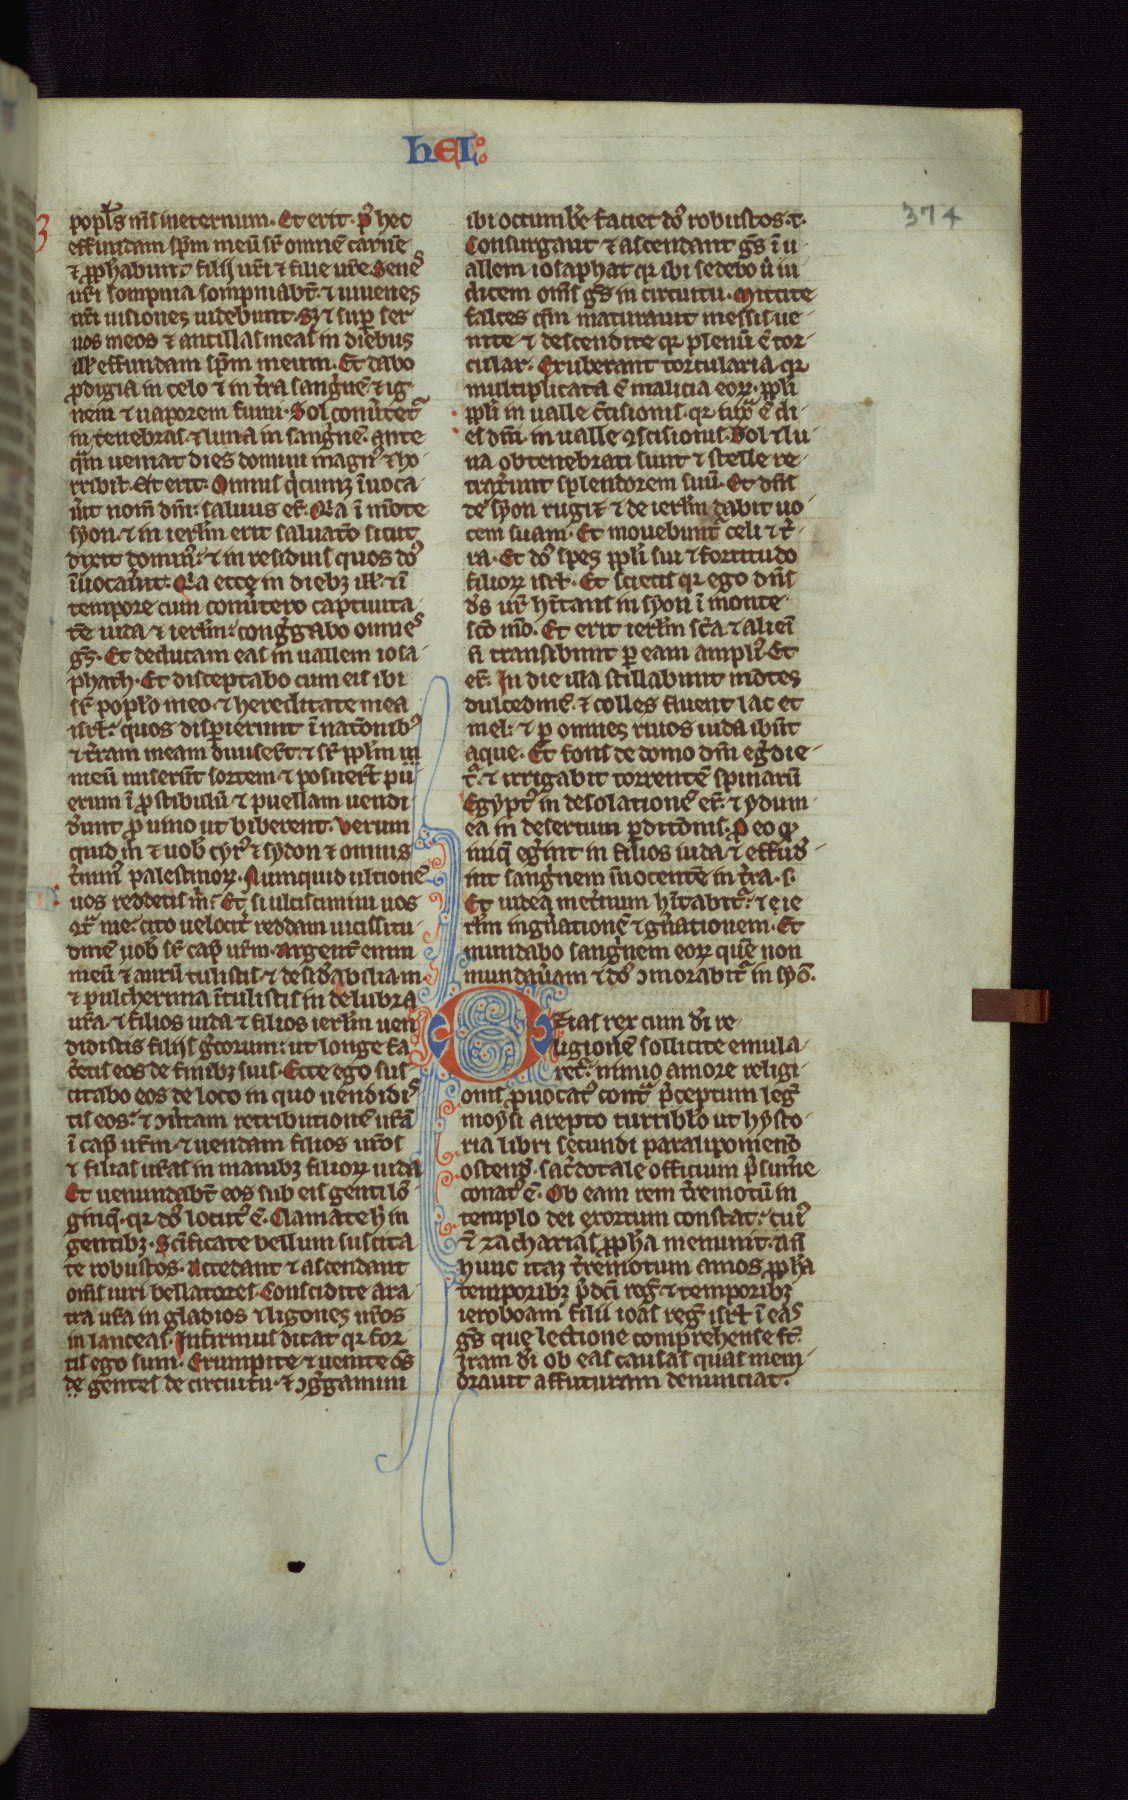 hEL
374
3
popls̄ m̄s ineternum. Et erit. p᷒ hec
effundam sp̄m meū sr̄ omnē carnē
⁊ ꝓphabunt. filij ur̄i ⁊ filie ur̄e. Senes
ur̄i sompnia sompniabt̄. ⁊ iuuenes
ur̄i uisiones uidebunt. Sꝫ ⁊ sup̄ ser
uos meos ⁊ ancillas meas in diebus
ill̄ effundam sp̄m meum. Et dabo
ꝓdigia in celo ⁊ in t̄ra sanguinē ⁊ ig
nem ⁊ uaporem fumi. Sol conūtet᷑
in tenebras. ⁊ luna in sanguinē ante
qm̄ ueniat dies domini magn᷒ ⁊ ho
rribil̄. Et erit. Omnis qicumqꝫ īuoca
ūit nom̄ dn̄i. saluus er̄. Qia ī mōte
syon. ⁊ in ierlm̄ erit saluatō sicut
dixit domin᷒. ⁊ in residuis quos do᷒
īuocau̅it. Qia ecce in diebꝫ ill̄ ⁊ ī
tempore cum conu̅tero captiuita
tē iuda ⁊ ierlm̄. congg̅abo omnes
gs̄. Et deducam eas in uallem iosa
phath. Et disceptabo cum eis ibi
sr̄ poplo meo. ⁊ hereditate mea
isrl̄. quos dispierunt ī natōnibꝰ
⁊ t̄ram meam diuiser̄t. ⁊ sr̄ pplm̄ m
meū miserūt sortem ⁊ posuer̄t pu
erum ī ꝓstibulū ⁊ puellam uendi
dunt ꝓ uino ut biberent. Verum
quid m̄ ⁊ uob̄ tyr᷒ ⁊ sydon ⁊ omnis
t̄min᷒ palestinorꝝ. Numquid ultionē
uos reddetis m̄. Et si ulciscimini uos
9t̄ me. cito uelocit̄ reddam uicissitu
dinē uob̄ sr̄ cap̄ ur̄m. Argent̄ enim
meū ⁊ aurū tulistis. ⁊ desid̄abilia m
⁊ pulcherrima ītulistis in delubra
ur̄a. ⁊ filios iuda ⁊ filios ierlm̄ uen
didistis filijs g̅corum. ut longe fa
c̅etis eos de finibꝫ suis. Ecce ego sus
citabo eos de loco in quo uendidis
tis eos. ⁊ 9u̅tam retributionē ur̄ā
ī cap̄ ur̄m. ⁊ uendam filios ur̄os
⁊ filias ur̄as in manibꝫ filiorꝝ iuda
Et uenundabt̄ eos sub eis genti lō
ginq̄. qr do᷒ locut᷒ ē. Clamate h̄ in
gentibꝫ. Scīficate bellum suscita
te robustos. Accedant ⁊ ascendant
om̄s uiri bellatores. Conscidite ara
tra ur̄a in gladios ⁊ ligones ur̄os
in lanceas. Infirmus dicat qr for
tis ego sum. Erumpite ⁊ uenite os̄
de gentes de circuitu. ⁊ 9gg̅amini
ibi occumbe̅ faciet do᷒ robustos. t.
Consurgant ⁊ ascendant gs̄ ī u
allem iosaphat qr ibi sedebo ū iu
dicem om̄s gs̄ in circuitu. Mittite
falces qm̄ maturauit messis ue
nite ⁊ descendite qr plenū ē tor
cular. Exuberant torcularia qr
multiplicata ē malicia eorꝝ. ppl̄i
ppl̄i in ualle 9cisionis. qr iux̅ ē di
es dn̄i. in ualle 9scisionis. Sol ⁊ lu
na obtenebrati sunt ⁊ stelle re
trax̅unt splendorem suū. Et dn̄s
de syon rugiet ⁊ de ierlm̄ dabit uo
cem suam. Et mouebunt᷑ celi ⁊ t̅
ra. Et do᷒ spes ppl̄i sui ⁊ fortitudo
filiorꝝ isrl̄. Et scietis qr ego dn̄s
ds̄ ur̄ hītans in syon ī monte
scō mō. Et erit ierlm̄ sc̄a ⁊ alieī
n̄ transibunt p̱ eam ampli᷒. Et
er̄. In die illa stillabunt mōtes
dulcedinē. ⁊ colles fluent lac et
mel. ⁊ p̱ omnes riuos iuda ibūt
aque. Et fons de domo dn̄i eg̅die
t᷑. ⁊ irrigabit torrentē spinarū
Egypt᷒ in desolationē er̄. ⁊ ydum
ea in desertum p̱ditōnis. ꝓ eo qꝫ
iniq̄ eg̅int in filios iuda ⁊ effud̅
int sanguinem innocentē in t̄ra. s.
Et iudea in et̅num hītabit᷑. ⁊ e ie
rlm̄ in gn̄ationē ⁊ gn̄ationem. Et
mundabo sanguinem eorꝝ quē non
mundau̅am ⁊ do᷒ 9morabit᷑ in syō.
Ozias rex cum di̅ re
ligionē sollicite emula
ret᷑. nimio amore religi
onis ꝓuocat᷒ cont̅ p̅ceptum leg̅
moysi arepto turriblo ut hysto
ria libri secundi paralipomenō
ostend̅. sac̅dotale officium p̅sume̅
conat᷒ ē. Ob eam rem t̅remotū in
templo dei exortum constat. cui᷒
⁊ zacharias ꝓpha meminit. añ
hunc itaꝫ t̅remotum amos ꝓpha
temporibꝫ p̅dc̄i reg̅. ⁊ temporibꝫ
ieroboam filii ioas reg̅ isrl̄ ī eas
gs̄ que lectione comprehense st̄.
Iram di̅ ob eas causas quas mem
orauit affuturam denunciat.